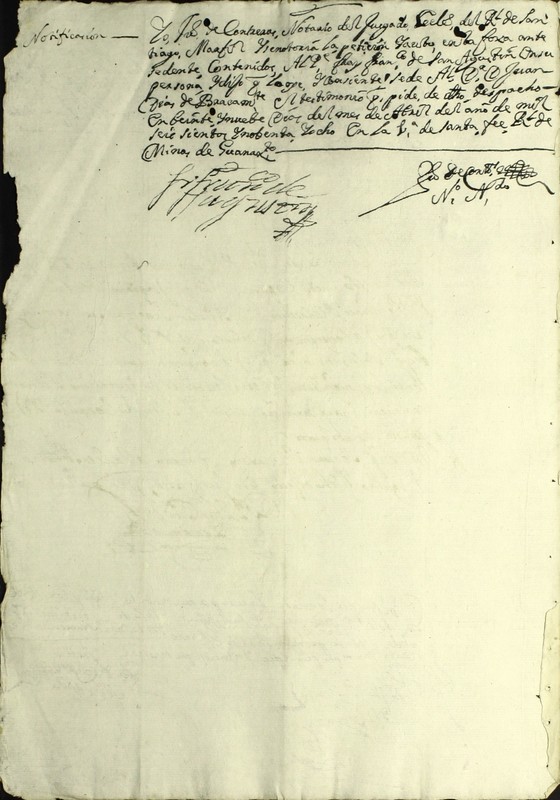 Notificación
Yo, de Contreras, Notario del Juzgado Ecles. del Rl. de San
tiago, Marfil Hisenotoria la petision Yauto, en la foxa ante
sedente Contenidos, Al Pe. fray Franco. de San Agustin Ensu
persona, Ydijo q Looye, Yconsiente sede Al Juan
Dias de Bracamte. el testimonio q. pide de dho despacho
En beinte Ynuebe Dias del mes de Abril del año de mill
seis sientos Ynobenta Yocho En la Va. de santa fee Rl. de
Minas de Guanaxto.
fr. Franco. de
S. Agustin
de Contrs.
No. Ado.